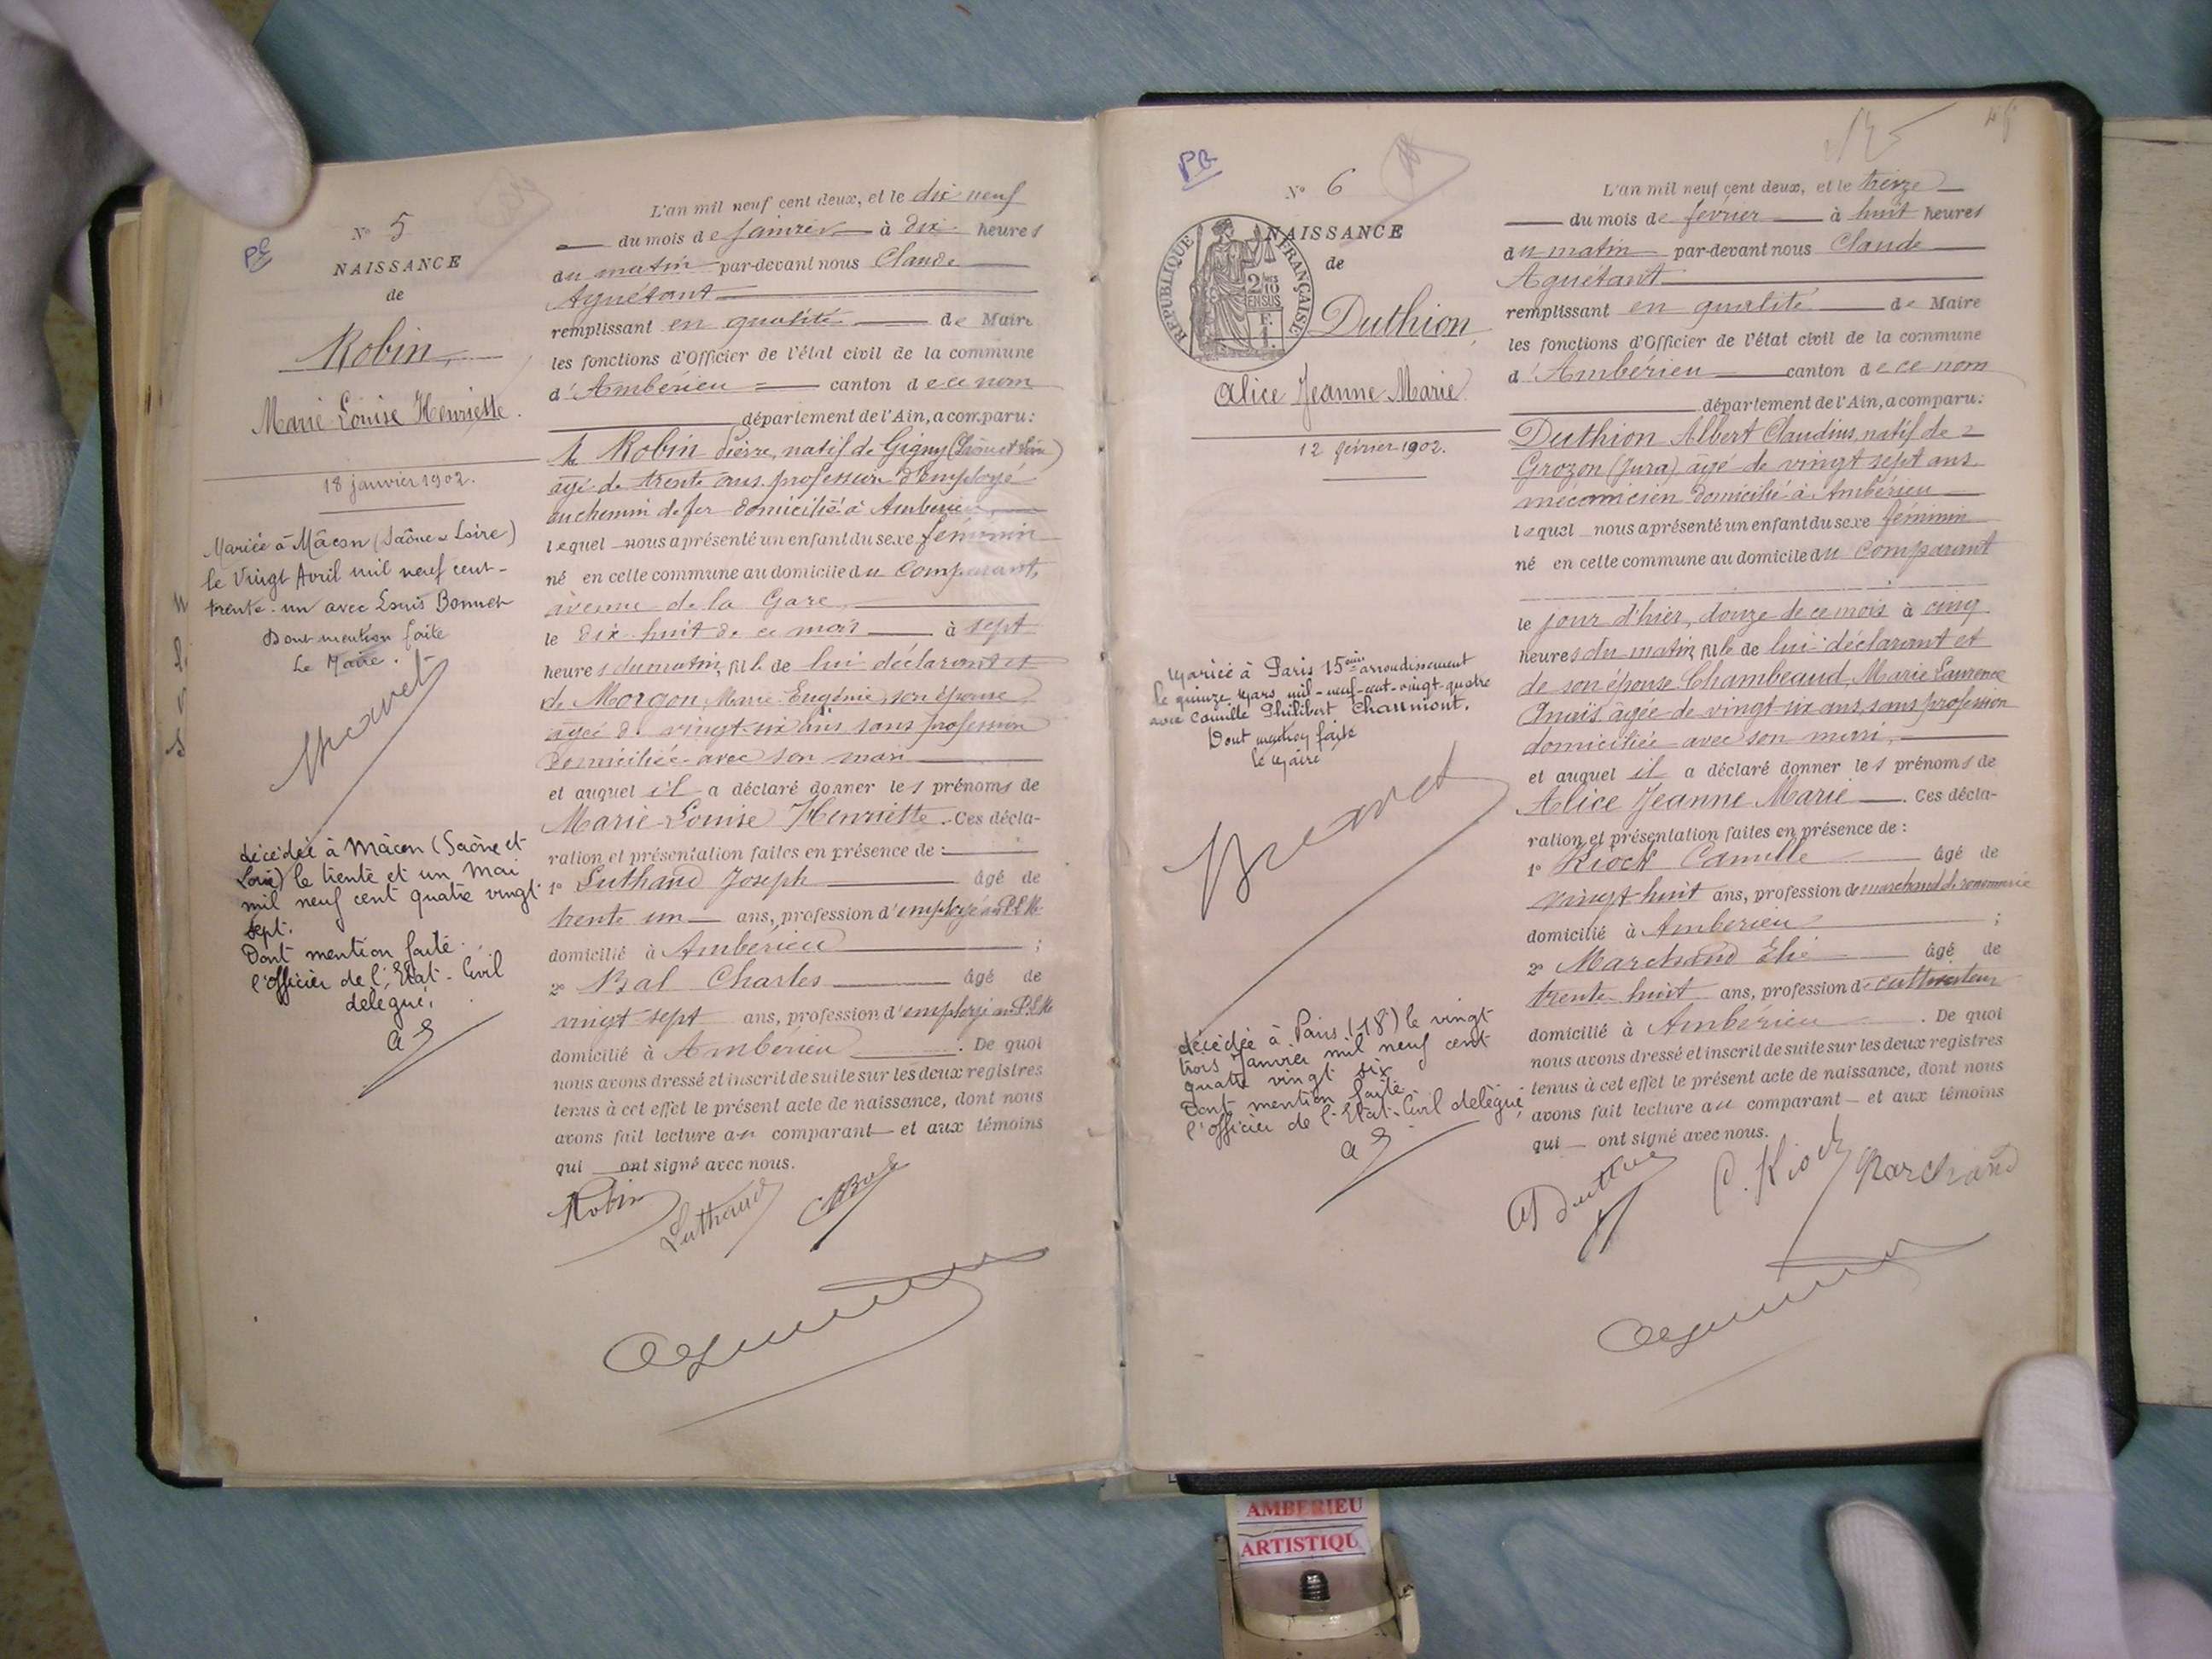 N° 5
NAISSANCE
de
Robin
Marie Louise Henriette.
18 janvier 1902.
Mariée à Mâcon (Saône & Loire)
le Vingt Avril mil neuf cent-
trente-un avec Louis Bonnet
Dont mention faite
Le Maire.
décédée à Mâcon (Saône et
Loire) le trente et un Mai
mil neuf cent quatre vingt
sept.
Dont mention faite.
l'officier de l'Etat-Civil
délégué,
L'an mil neuf cent deux, et le dix neuf
du mois de janvier à dix heures
du matin par-devant nous Claude
Aguétant
remplissant en qualité de Maire
les fonctions d'Officier de l'état civil de la commune
d'Ambérieu canton de ce nom
département de l'Ain, a comparu:
Robin Pierre, natif de Gigny (Saône et Loire)
âgé de trente ans, profession d'employé
au chemin de fer domicilié à Ambérieu,
lequel nous a présenté un enfant du sexe féminin
né en cette commune au domicile du Comparant,
avenue de la Gare
le dix-huit de ce mois à sept
heures du matin, fille de lui déclarant et
de Morgon Marie Eugénie, son épouse
âgée de vingt-six ans sans profession
domiciliée avec son mari
et auquel il a déclaré donner les prénoms de
Marie Louise Henriette. Ces décla-
ration et présentation faites en présence de:
1° Luthaud Joseph âgé de
trente un ans, profession d'employé au P.L.M.
domicilié à Ambérieu ;
2° Bal Charles âgé de
vingt sept ans, profession d'employé au P.L.M.
domicilié à Ambérieu. De quoi
nous avons dressé et inscrit de suite sur les deux registres
tenus à cet effet le présent acte de naissance, dont nous
avons fait lecture au comparant et aux témoins
qui ont signé avec nous.
Robin Luthaud CBal
PB
N° 6
NAISSANCE
de
REPUBLIQUE FRANÇAISE
Duthion,
Alice Jeanne Marie
12 février 1902.
Mariée à Paris 15ème arrondissement
le quinze Mars mil-neuf-cent-vingt-quatre
avec Camille Philibert Chaumont.
Dont mention faite
le Maire
décédée à Paris (18°) le vingt
trois Janvier mil neuf cent
quatre vingt six
Dont mention faite.
l'officier de l'Etat-Civil délégué,
L'an mil neuf cent deux, et le treize
du mois de février à huit heures
du matin par-devant nous Claude
Aguétant
remplissant en qualité de Maire
les fonctions d'Officier de l'état civil de la commune
d'Ambérieu canton de ce nom
département de l'Ain, a comparu:
Duthion Albert Claudius, natif de
Grozon (Jura) âgé de vingt sept ans
mécanicien domicilié à Ambérieu
lequel nous a présenté un enfant du sexe féminin
né en cette commune au domicile du Comparant
le jour d'hier, douze de ce mois à cinq
heures du matin, fille de lui déclarant et
de son épouse Chambeaud, Marie Laurence
Anaïs âgée de vingt six ans, sans profession
domiciliée avec son mari,
et auquel il a déclaré donner les prénoms de
Alice Jeanne Marie. Ces décla-
ration et présentation faites en présence de:
1° Kioch Camille âgé de
vingt-huit ans, profession de marchand de
domicilié à Ambérieu ;
2° Marchand Elie âgé de
trente-huit ans, profession de cultivateur
domicilié à Ambérieu. De quoi
nous avons dressé et inscrit de suite sur les deux registres
tenus à cet effet le présent acte de naissance, dont nous
avons fait lecture au comparant et aux témoins
qui ont signé avec nous.
C. Kioch Marchand
AMBERIEU
ARTISTIQU